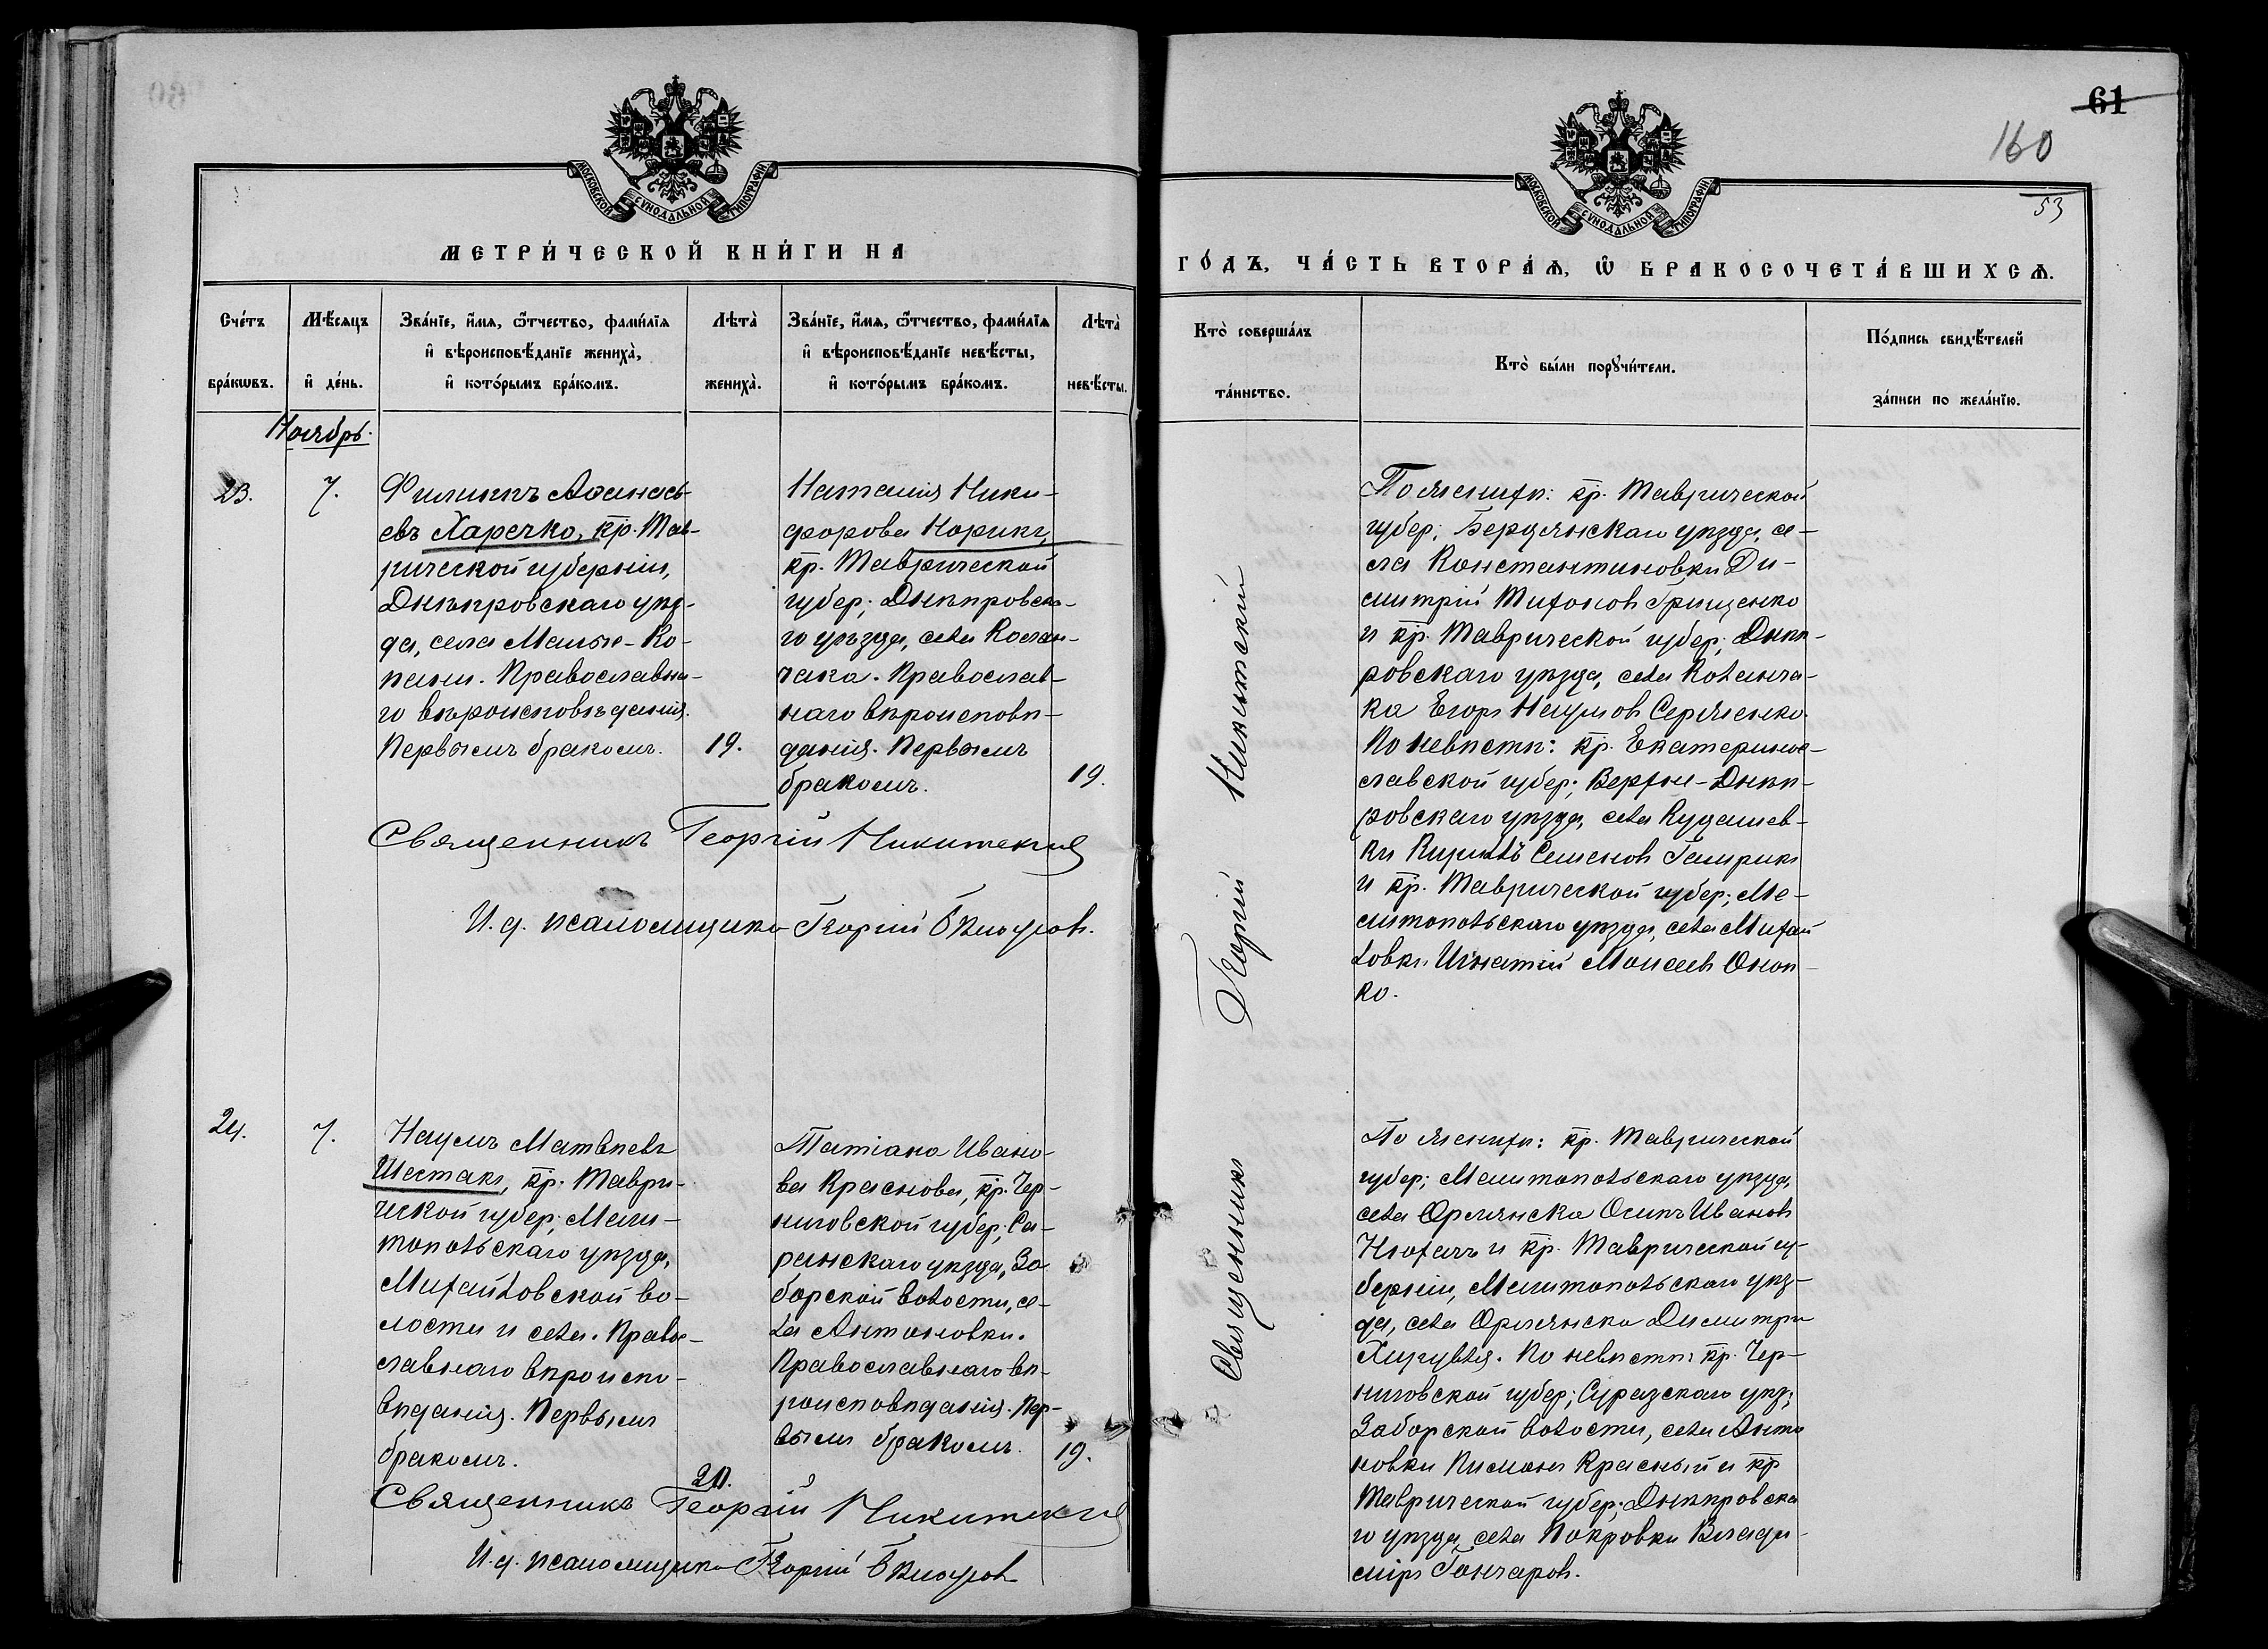 МОСКОВСКОЙ СУНОДАЛЬНОЙ ТИПОГРАФІИ.
МЕТРИ́ЧЕСКОЙ КНИ́ГИ НА
Сче́тъ бра́кωвъ.
Мѣ́сяцъ и҆ де́нь.
Зва́нїе, и҆́мѧ, ѻ҆́тчество, фами́лїѧ
и҆ вѣроисповѣ́данїе жениха̀,
и҆ кото́рымъ бра́комъ.
Лѣта̀ жениха̀.
Зва́нїе, и҆́мѧ, ѻ҆́тчество, фами́лїѧ
и҆ вѣроисповѣ́данїе невѣ́сты,
и҆ кото́рымъ бра́комъ.
Лѣта̀ невѣ́сты.
Ноябрь.
23.
7.
Филиппъ Аѳанась-
евъ Харечко, кр. Тав-
рической губерніи,
Днѣпровскаго уѣз-
да, села Малые-Ко-
пани. Православна-
го вѣроисповѣданія.
Первымъ бракомъ.
19.
Наталія Ники-
форова
кр. Таврической
губер; Днѣпровска-
го уѣзда, села Колан-
чака. Православ-
наго вѣроисповѣ-
данія. Первымъ
бракомъ.
19.
Священникъ Георгій Никитскій
И. д. псаломщика Георгій
24.
7.
Наумъ Матвѣевъ
Шестакъ, кр. Таври-
ческой губер; Мели-
топольскаго уѣзда,
Михайловской во-
лости и села. Право-
славнаго вѣроиспо-
вѣданія. Первымъ
бракомъ.
20.
Татіана Ивано-
ва Краснова, кр. Чер-
ниговской губер;
уѣзда, За-
борской волости, се-
ла Антоновки.
Православнаго вѣ-
роисповѣданія. Пер-
вымъ бракомъ.
19.
Священникъ Георгій Никитскій
И. д. псаломщика Георгій
61
160
53
МОСКОВСКОЙ СУНОДАЛЬНОЙ ТИПОГРАФІИ.
ГО́ДЪ, ЧА́СТЬ ВТОРА́Ѧ, Ѽ БРАКОСОЧЕТА́ВШИХСѦ.
Кто̀ соверша́лъ
та́инство.
Кто̀ бы́ли порꙋчи́тели.
По́дпись свидѣ́телей
за́писи по жела́нїю.
Священникъ Георгій Никитскій
По женихѣ: кр. Таврической
губер; Бердянскаго уѣзда, се-
ла Константиновки Ди-
митрій Тихоновъ Грищенко
и кр. Таврической губер; Днѣп-
ровскаго уѣзда, села Коланча-
ка Егоръ Наумовъ
По невѣстѣ: кр. Екатерино-
славской губер; Верхне-Днѣп-
ровскаго уѣзда, села Кудашев-
ки Кириллъ Семеновъ
и кр. Таврической губер; Ме-
литопольскаго уѣзда, села Михай
ловки Игнатій Моисеевъ Оноп-
ко.
По женихѣ: кр. Таврической
губер; Мелитопольскаго уѣзда,
села Орлянска Осипъ Ивановъ
и кр. Таврической гу-
берніи, Мелитопольскаго уѣз-
да, села Орлянска Димитри
По невѣстѣ: кр. Чер-
ниговской губер; Суражскаго уѣз;
Заборской волости, села Анто
новки Пименъ Красный и кр
Таврической губер; Днѣпровска
го уѣзда, села Покровки Влади-
міръ Гончаровъ.